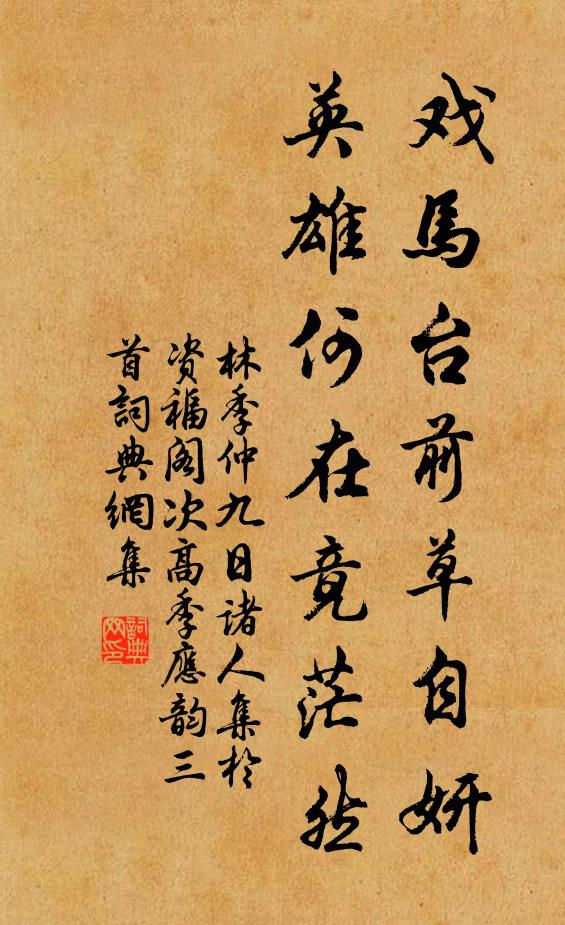 戏馬台前草自妍
英雄何在竟茫然
林季仲九日诸人集於
资福阁次高季應韵三
首詞典網集
詞典
网印